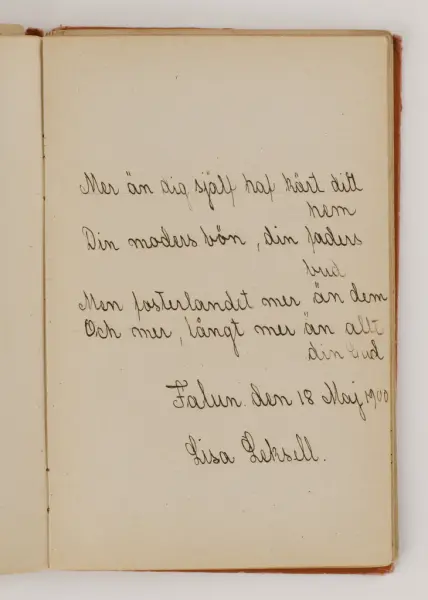 Mer än dig sjelf haf kärt ditt
hem
Din moders bön, din faders
bud
Men fosterlandet mer än dem
Och mer, långt mer än allt
din Gud
Falun den 18 Maj 1900
Lisa Leksell.